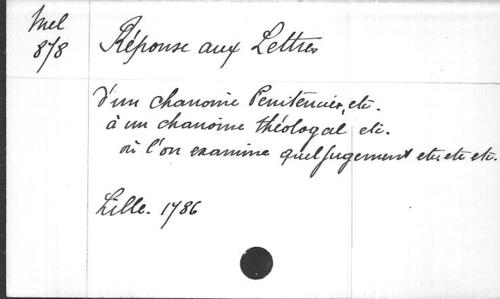 Mel
878
Réponse aux Lettres
d'un chanoine Penitencier, etc.
à un chanoine théologal etc.
où l'on examine quel jugement etc etc etc.
Lille. 1786